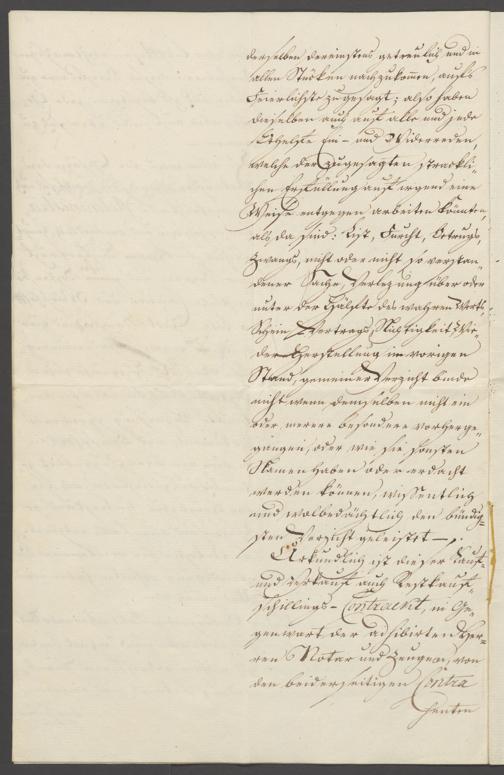 derselben dereinstens getreulich und in
allen Stücken nachzukommen, aufs
Feierlichste zugesagt; also haben
dieselben auch auf alle und jede
Behelfe Ein- und Widerreden,
welche der zugesagten stractli¬
chen Erfüllung auf irgend eine
Weise entgegen arbeiten könnten,
als da sind: List, Furcht, Betrugs,
Zwangs, nicht oder nicht so verstan¬
dener Sache, Verletzung über oder
unter der Hälfte des wahren Werts,
Schein Vertrags, Nichtigkeit, Wie¬
der Herstellung im vorigen
Stand, gemeiner Verzicht binde
nicht wenn demselben nicht ein
oder merere besondere vorherge¬
gangen, oder wie sie sonsten
Namen haben oder erdacht
werden können, wissentlich
und wolbedächtlich den bündig¬
sten Verzicht geleistet –.
Urkundlich ist dieser Kauf-
und Verkauf auch Restkauf¬
schillings-Contract, in Ge¬
genwart der adhibirten Her¬
ren Notar und Zeugen, von
den beiderseitigen Contra
henten